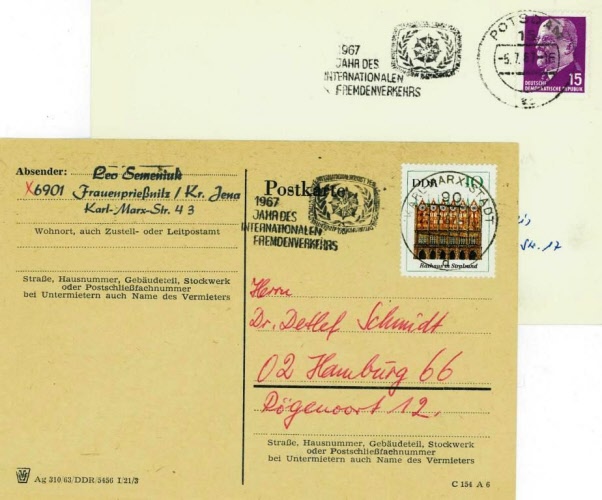 1967
JAHR DES
INTERNATIONALEN
FREMDENVERKEHRS
POTSDAM
-5.7.
15
DEUTSCHE
DEMOKRATISCHE REPUBLIK
Str. 17
Absender: Leo Semeniuk
X6901 Frauenprießnitz / Kr. Jena
Karl-Marx-Str. 43
Wohnort, auch Zustell- oder Leitpostamt
Straße, Hausnummer, Gebäudeteil, Stockwerk
oder Postschließfachnummer
bei Untermietern auch Name des Vermieters
Postkarte
1967
JAHR DES
INTERNATIONALEN
FREMDENVERKEHRS
DDR 10
KARL-MARX-STADT
90
Rathaus in Stralsund
Herrn
Dr. Detlef Schmidt
02 Hamburg 66
Rögenoort 12.
Straße, Hausnummer, Gebäudeteil, Stockwerk
oder Postschließfachnummer
bei Untermietern auch Name des Vermieters
Ag 310/63/DDR/5456 I/21/2
C 154 A 6